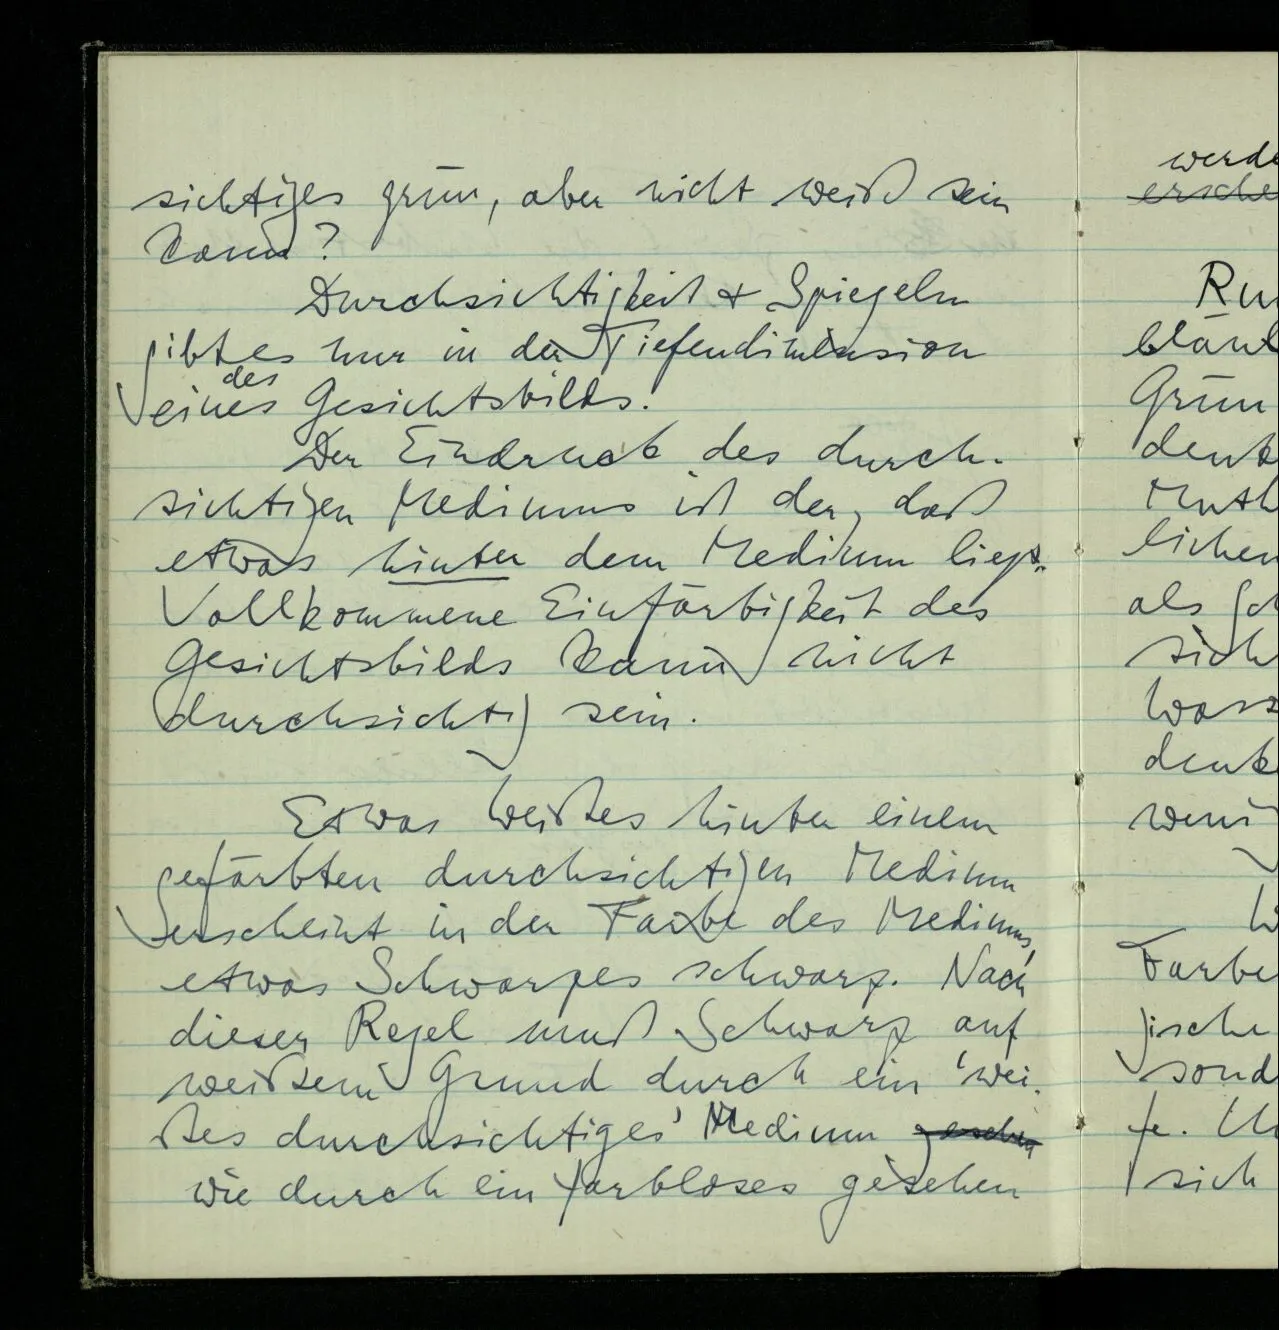 sichtiges grün, aber nicht weiß sein
kann?
Durchsichtigkeit & Spiegeln
gibt es nur in der Tiefendimension
des
eines Gesichtsbilds.
Der Eindruck des durch-
sichtigen Mediums ist der, daß
etwas hinter dem Medium liegt.
Vollkommene Einfärbigkeit des
Gesichtsbilds kann nicht
durchsichtig sein.
Etwas Weißes hinter einem
gefärbten durchsichtigen Medium
erscheint in der Farbe des Mediums,
etwas Schwarzes schwarz. Nach
dieser Regel muß Schwarz auf
weißem Grund durch ein 'wei-
ßes durchsichtiges' Medium
wie durch ein farbloses gesehen
werde
ersche
Run
bläul
Grün
denk
Muth
lichen
als
sich
wass
denke
weni
Farbe
gische
sond
sich